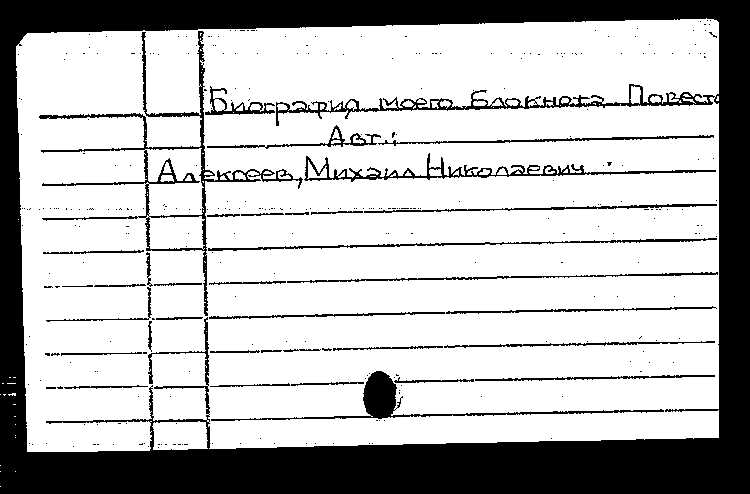 Биография моего блокнота Повест
Авт.:
Алексеев, Михаил Николаевич.